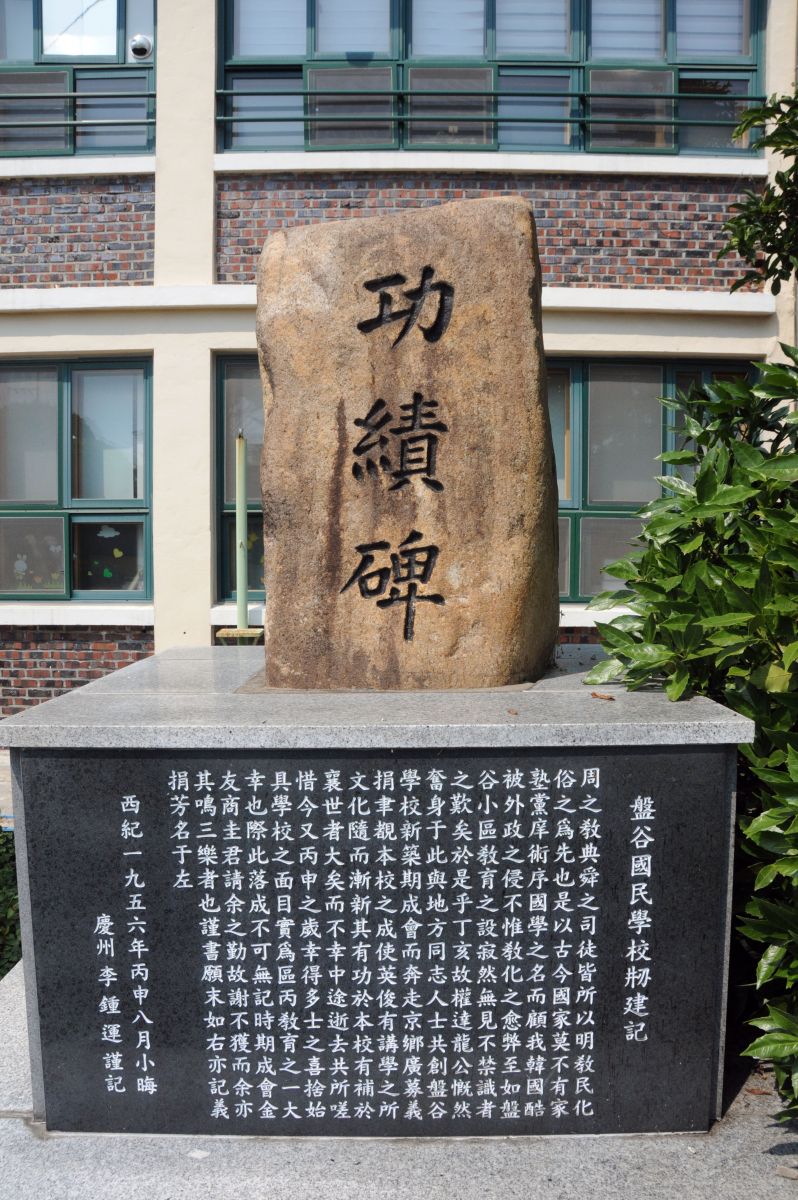 功績碑
盤谷國民學校刱建記
周之敎典舜之司徒皆所以明敎民化
俗之爲先也是以古今國家莫不有家
塾黨庠術序國學之名而顧我韓國酷
被外政之侵不惟敎化之愈弊至如盤
谷小區敎育之設寂然無見不禁識者
之歎矣於是乎丁亥故權達龍公慨然
奮身于此與地方同志人士共創盤谷
學校新築期成會而奔走京鄉廣募義
捐聿觀本校之成使英俊有講學之所
文化隨而漸新其有功於本校有補於
襄世者大矣而不幸中途逝去共所嗟
惜今又丙申之歲幸得多士之喜捨始
具學校之面目實爲區丙敎育之一大
幸也際此落成不可無記時期成會金
友商主君請余之勤故謝不獲而余亦
其鳴三樂者也謹書願末如右亦記義
捐芳名于左
西紀一九五六年丙申八月小晦
慶州李鍾運謹記